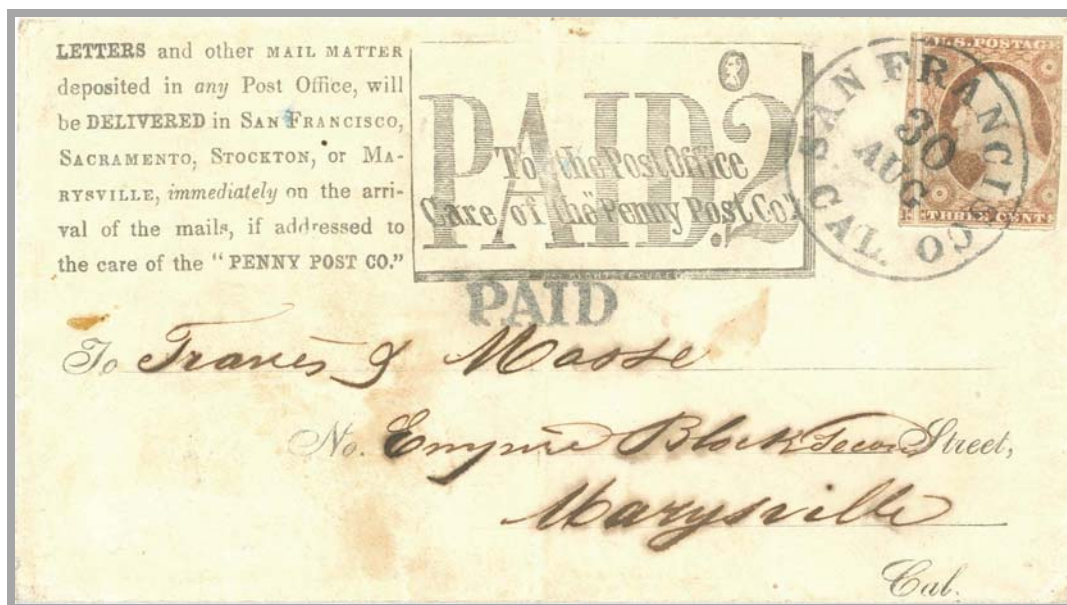 LETTERS and other MAIL MATTER
deposited in any Post Office, will
be DELIVERED in SAN FRANCISCO,
SACRAMENTO, STOCKTON, or MA-
RYSVILLE, immediately on the arri-
val of the mails, if addressed to
the care of the "PENNY POST CO."
PAID.2
To the Post Office
Care of the "Penny Post Co."
PAID
SAN FRANCISCO
30
AUG
CAL.
U.S. POSTAGE
THREE CENTS
To Traves & Masse
No. Empire Block Street,
Marysville
Cal.